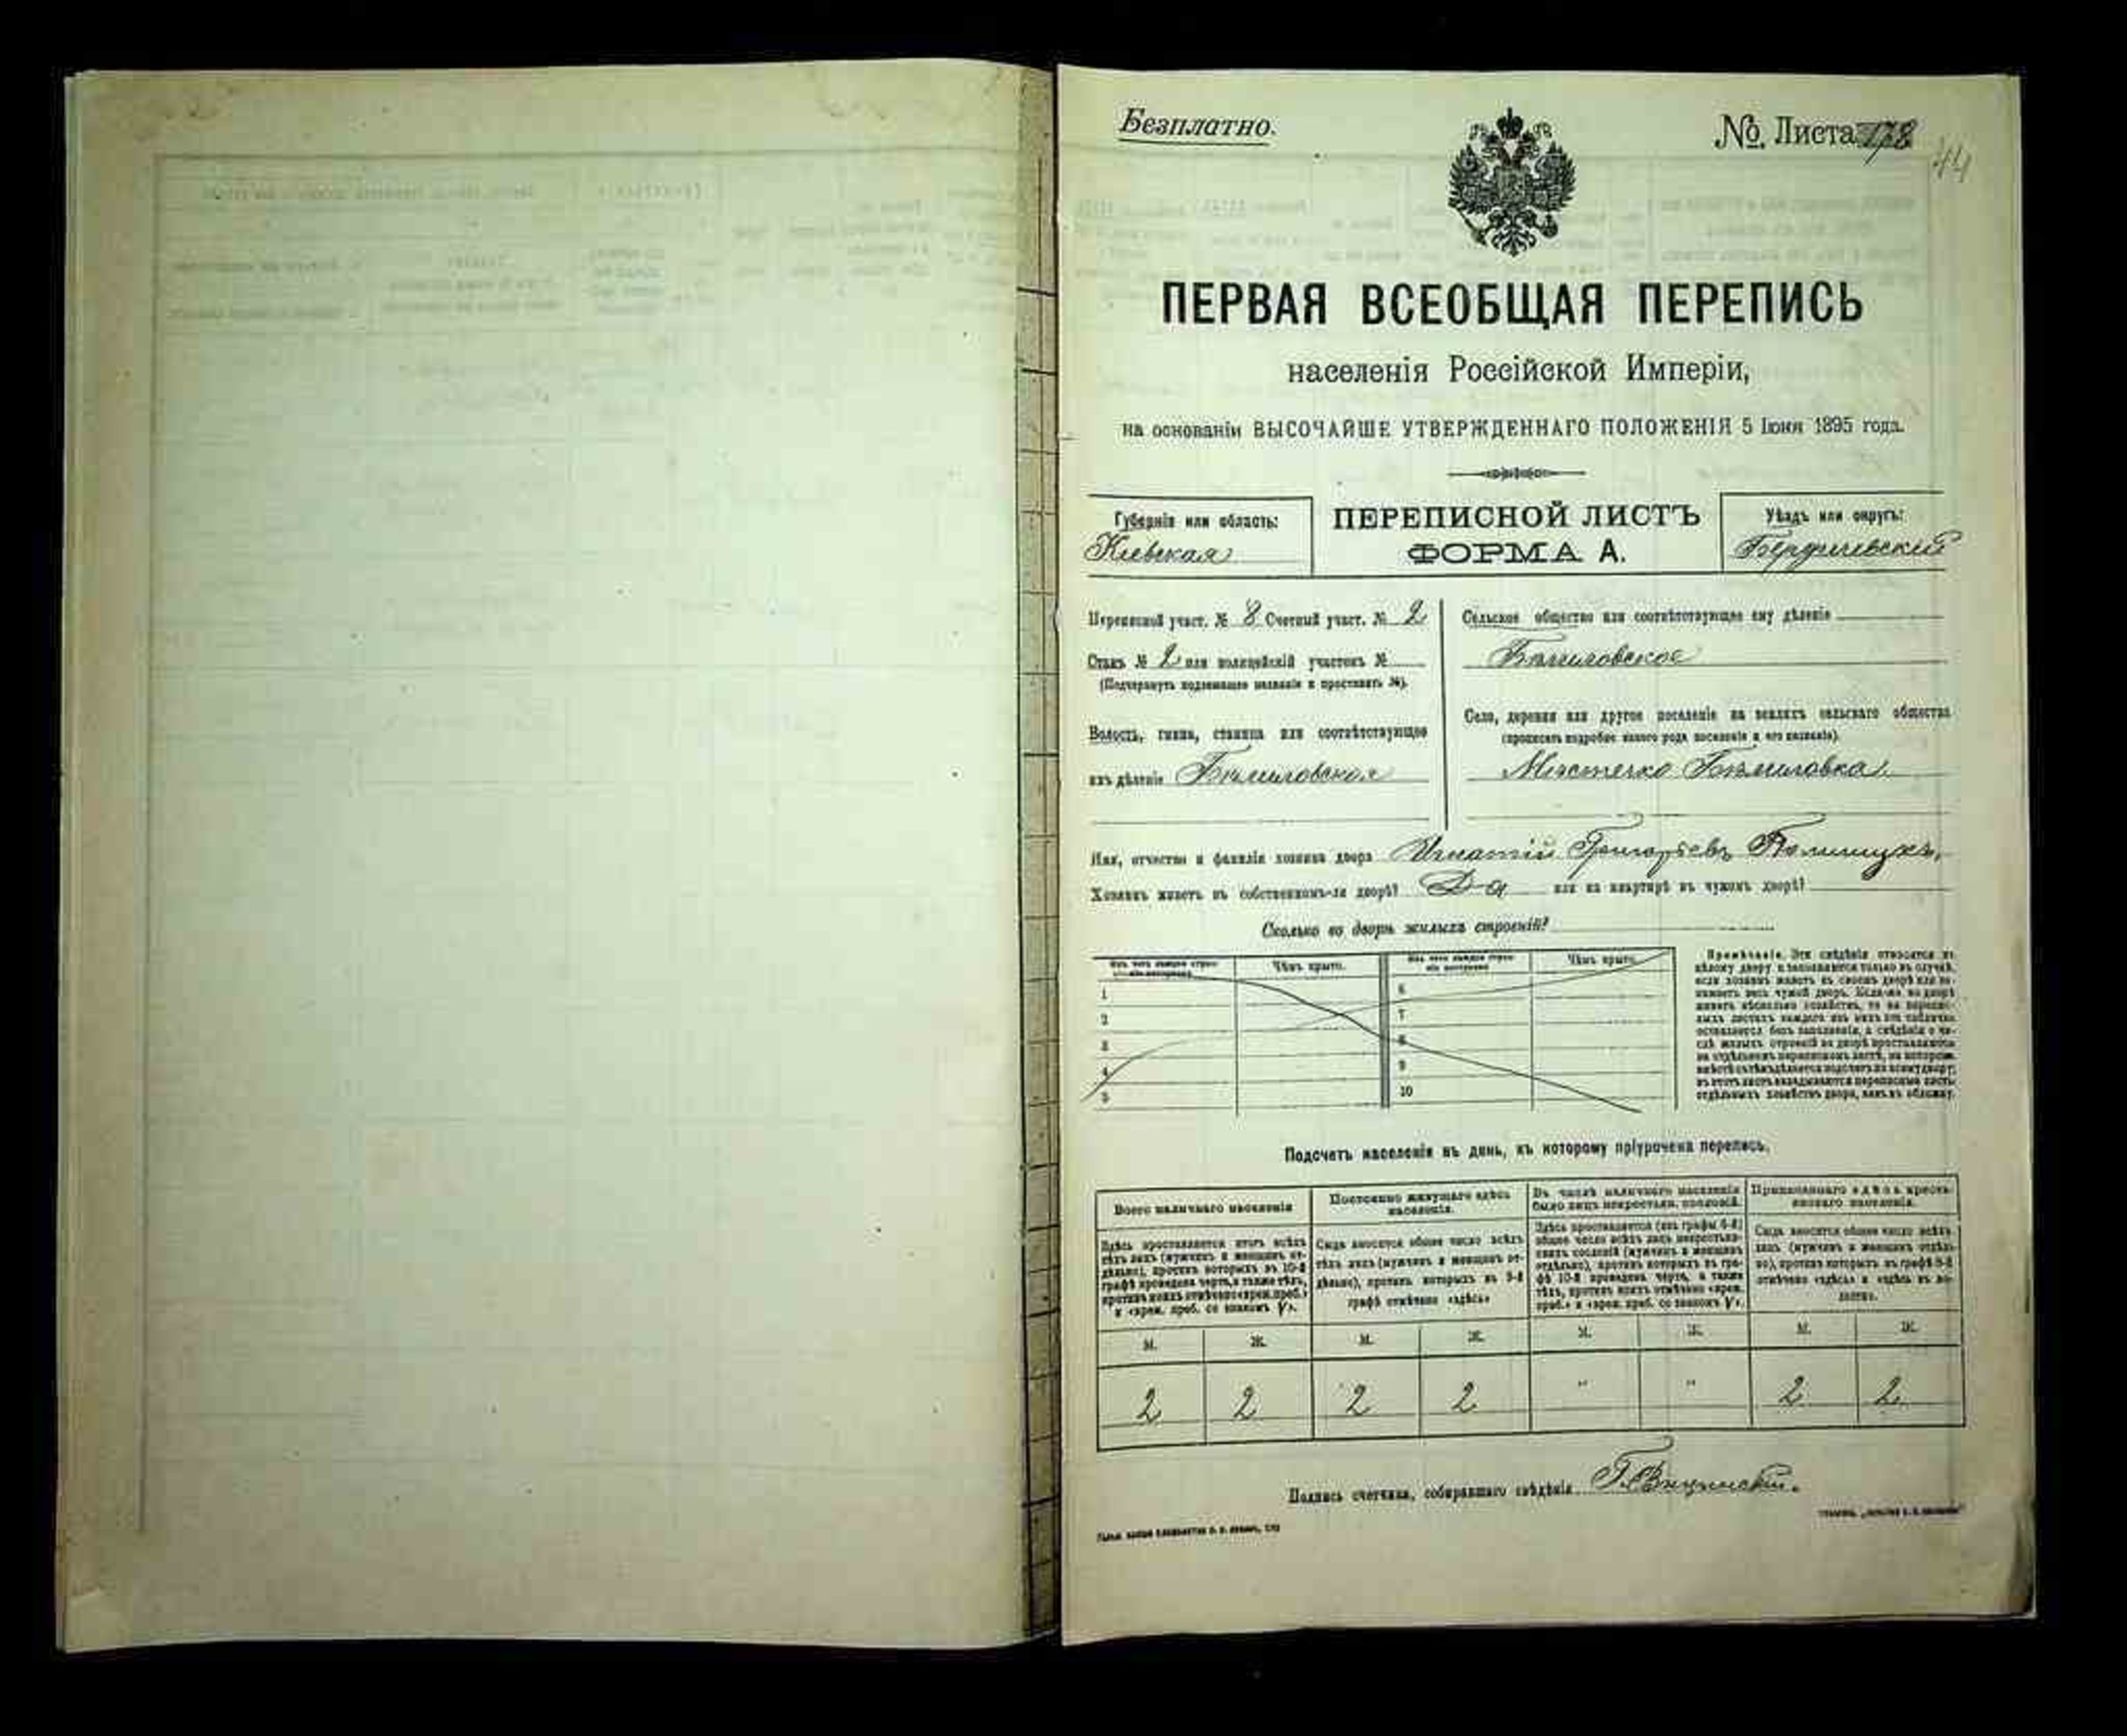 Безплатно.
№ Листа 178
44
ПЕРВАЯ ВСЕОБЩАЯ ПЕРЕПИСЬ
населенія Россійской Имперіи,
на основаніи ВЫСОЧАЙШЕ УТВЕРЖДЕННАГО ПОЛОЖЕНІЯ 5 Іюня 1895 года.
Губернія или область:
Кіевская
ПЕРЕПИСНОЙ ЛИСТЪ
ФОРМА А.
Уѣздъ или округъ:
Бердичевскій
Переписной участ. № 8 Счетный участ. № 2
Станъ № 2 или полицейскій участокъ №
(Подчеркнуть подлежащее названіе и проставить №).
Волость, гмина, станица или соотвѣтствующее
имъ дѣленіе Бѣлиловская
Сельское общество или соотвѣтствующее ему дѣленіе
Бѣлиловское
Село, деревня или другое поселеніе на земляхъ сельскаго общества
(прописать подробно какого рода поселеніе и его названіе).
Мѣстечко Бѣлиловка
Имя, отчество и фамилія хозяина двора Игнатій Григорьевъ
Хозяинъ живетъ въ собственномъ-ли дворѣ? Да или на квартирѣ въ чужомъ дворѣ?
Сколько во дворѣ жилыхъ строеній?
Изъ чего каждое строеніе построено.
Чѣмъ крыто.
Изъ чего каждое строеніе построено
Чѣмъ крыто.
1
2
3
4
5
6
7
8
9
10
Примѣчаніе. Эти свѣдѣнія относятся къ
цѣлому двору и заполняются только въ случаѣ,
если хозяинъ живетъ въ своемъ дворѣ или занимаетъ весь чужой дворъ. Если-же во дворѣ
живетъ нѣсколько хозяйствъ, то на переписныхъ листахъ каждаго изъ нихъ эта табличка
оставляется безъ заполненія, а свѣдѣнія о числѣ жилыхъ строеній во дворѣ проставляются
на отдѣльномъ переписномъ листѣ, на которомъ
вмѣстѣ съ тѣмъ дѣлается подсчетъ по всему двору;
въ этотъ листъ вкладываются переписные листы
отдѣльныхъ хозяйствъ двора, какъ въ обложку.
Подсчетъ населенія въ день, къ которому пріурочена перепись.
Всего наличнаго населенія
Постоянно живущаго здѣсь населенія.
Въ числѣ наличнаго населенія было лицъ некрестьян. сословій.
Приписаннаго здѣсь крестьянскаго населенія.
Здѣсь проставляется итогъ всѣхъ
тѣхъ лицъ (мужчинъ и женщинъ отдѣльно), противъ которыхъ въ 10-й
графѣ проведена черта, а также тѣхъ,
противъ коихъ отмѣчено «врем. преб.»
и «врем. преб. со знакомъ V».
Сюда вносится общее число всѣхъ
тѣхъ лицъ (мужчинъ и женщинъ отдѣльно), противъ которыхъ въ 9-й
графѣ отмѣчено «здѣсь»
Здѣсь проставляется (изъ графы 4-й)
общее число всѣхъ лицъ некрестьянскихъ сословій (мужчинъ и женщинъ
отдѣльно), противъ которыхъ въ графѣ 10-й проведена черта, а также
тѣхъ, противъ коихъ отмѣчено «врем.
преб.» и «врем. преб. со знакомъ V».
Сюда вносится общее число всѣхъ
лицъ (мужчинъ и женщинъ отдѣльно), противъ которыхъ въ графѣ 8-й
отмѣчено «здѣсь» и «здѣсь въ волости».
М. Ж. М. Ж. М. Ж. М. Ж.
2 2 2 2 " " 2 2
Подпись счетчика, собиравшаго свѣдѣнія